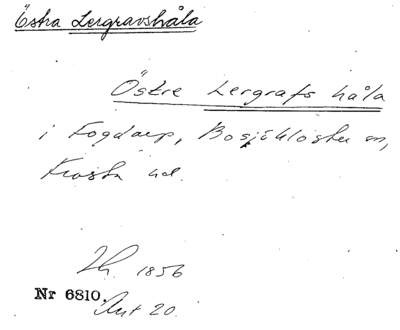 Östra Lergravshåla
Östre Lergrafs håla
i Fogdarp, Bosjökloster sn,
Frosta hd.
Lh. 1856
Nr 6810. Akt 20.